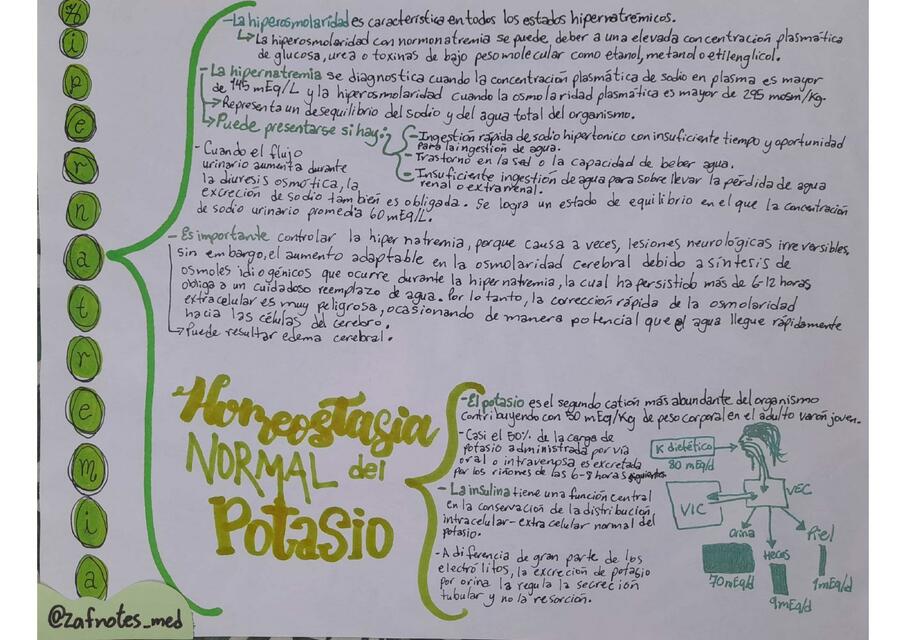 Hipernatremia
-La hiperosmolaridad es característica en todos los estados hipernatrémicos.
La hiperosmolaridad con normonatremia se puede deber a una elevada concentración plasmática
de glucosa, urea o toxinas de bajo peso molecular como etanol, metanol o etilenglicol.
-La hipernatremia se diagnostica cuando la concentración plasmática de sodio en plasma es mayor
de 145 mEq/L y la hiperosmolaridad cuando la osmolaridad plasmática es mayor de 295 mosm/Kg.
Representa un desequilibrio del sodio y del agua total del organismo.
Puede presentarse si hay:
-Ingestión rápida de sodio hipertonico con insuficiente tiempo y oportunidad
para la ingestion de agua.
-Trastorno en la sed o la capacidad de beber agua.
-Insuficiente ingestión de agua para sobre llevar la pérdida de agua
renal o extrarrenal.
-Cuando el flujo
urinario aumenta durante
la diuresis osmótica, la
excreción de sodio también es obligada. Se logra un estado de equilibrio en el que la concentración
de sodio urinario promedia 60 mEq/L.
-Es importante controlar la hipernatremia, porque causa a veces, lesiones neurológicas irreversibles,
sin embargo, el aumento adaptable en la osmolaridad cerebral debido a síntesis de
osmoles idiogénicos que ocurre durante la hipernatremia, la cual ha persistido más de 6-12 horas
obliga a un cuidadoso reemplazo de agua. Por lo tanto, la corrección rápida de la osmolaridad
extracelular es muy peligrosa, ocasionando de manera potencial que el agua llegue rápidamente
hacia las células del cerebro.
Puede resultar edema cerebral.
Homeostasia
NORMAL del
Potasio
-El potasio es el segundo catión más abundante del organismo
contribuyendo con 50 mEq/Kg de peso corporal en el adulto varón joven.
-Casi el 50% de la carga de
potasio administrada por via
oral o intravenosa es excretada
por los riñones de las 6-8 horas siguientes
-La insulina tiene una función central
en la conservación de la distribución,
intracelular-extracelular normal del
potasio.
-A diferencia de gran parte de los
electrólitos, la excreción de potasio
por orina la regula la secreción
tubular y no la resorción.
K dietético
80 mEq/d
VIC
VEC
Orina
70 mEq/d
Heces
9 mEq/d
Piel
1 mEq/d
@zafnotes_med